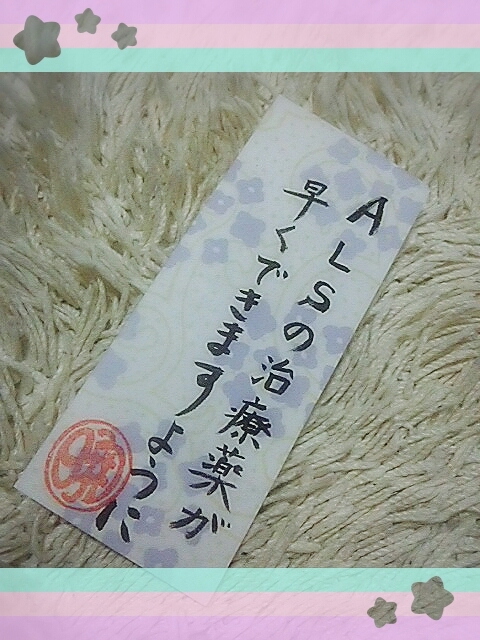 ALSの治療薬が
早くできますように